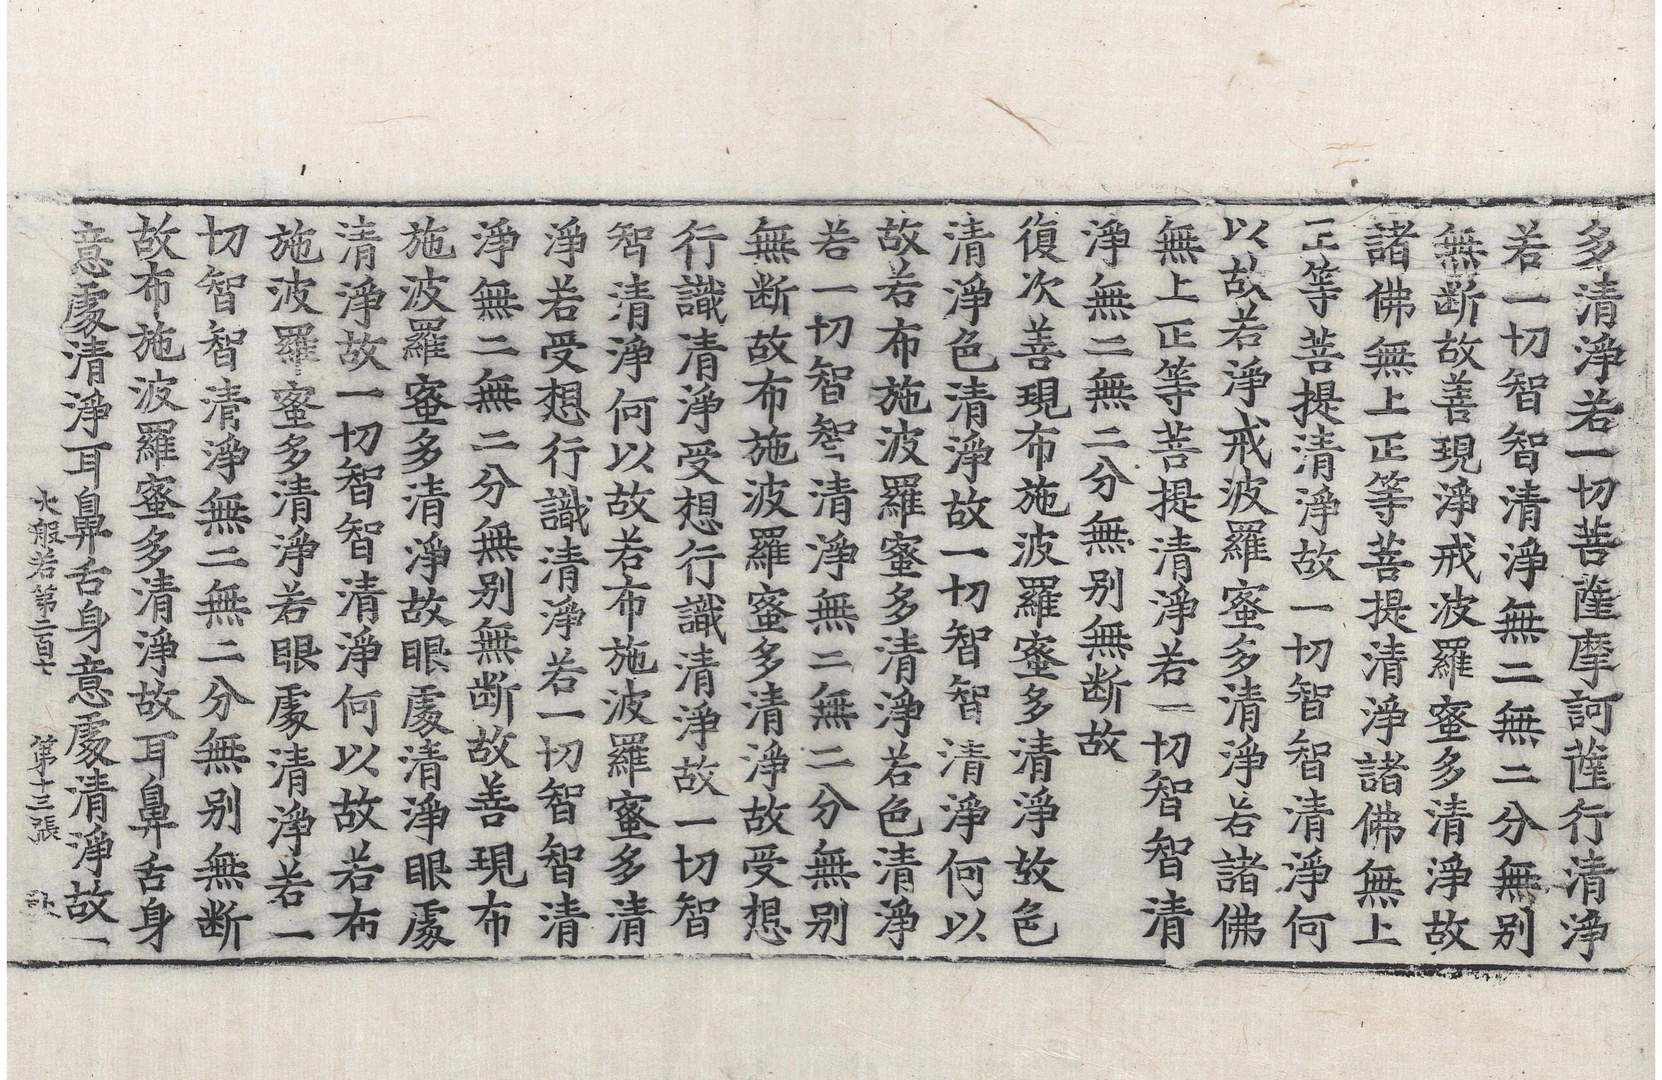 多清淨若一切菩薩摩訶薩行清淨
若一切智智清淨無二無二分無別
無断故善現淨戒波羅蜜多清淨故
諸佛無上正等菩提清淨諸佛無上
正等菩提清淨故一切智智清淨何
以故若淨戒波羅蜜多清淨若諸佛
無上正等菩提清淨若一切智智清
淨無二無二分無別無断故
復次善現布施波羅蜜多清淨故色
清淨色清淨故一切智智清淨何以
故若布施波羅蜜多清淨若色清淨
若一切智智清淨無二無二分無別
無断故布施波羅蜜多清淨故受想
行識清淨受想行識清淨故一切智
智清淨何以故若布施波羅蜜多清
淨若受想行識清淨若一切智智清
淨無二無二分無別無断故善現布
施波羅蜜多清淨故眼處清淨眼處
清淨故一切智智清淨何以故若布
施波羅蜜多清淨若眼處清淨若一
切智智清淨無二無二分無別無断
故布施波羅蜜多清淨故耳鼻舌身
意處清淨耳鼻舌身意處清淨故一
大般若第二百七 第十三張